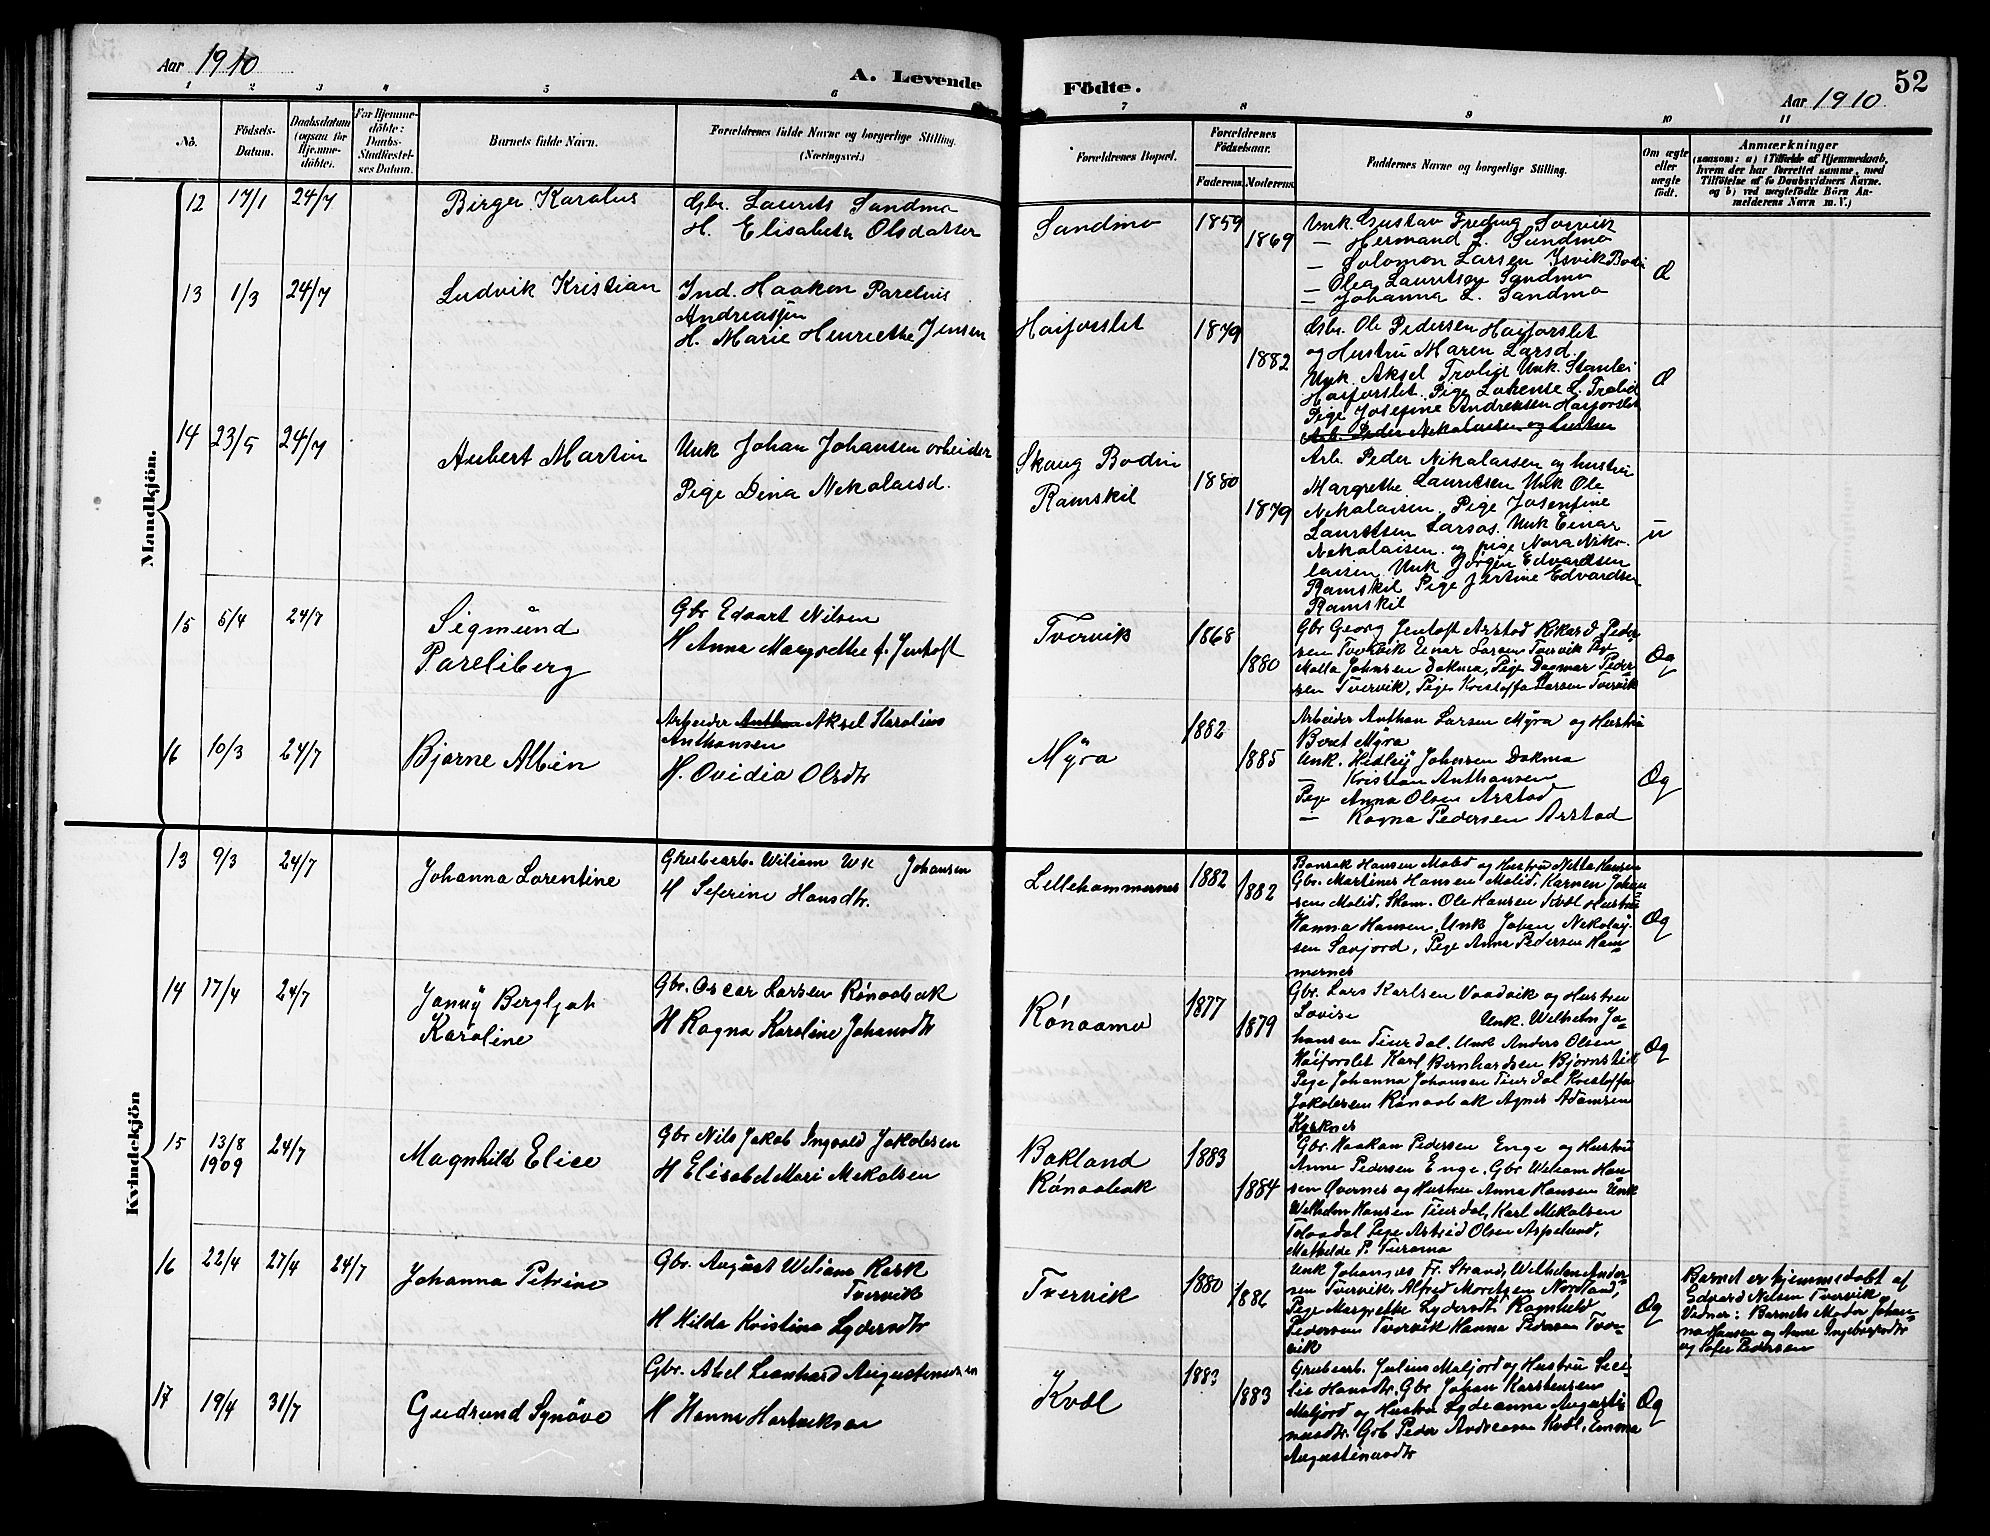 Aar 1910
A. Levende
Födte.
52
Aar 1910
1 2 3 4 5 6 7 8 9 10 11
No.
Födsels-
Datum.
Daabsdatum
(ogsaa for
Hjemme-
döbte).
For Hjemme-
döbte:
Daabs-
Stadfæstel-
ses Datum.
Barnets fulde Navn.
Forældrenes fulde Navne og borgerlige Stilling.
(Næringsvei.)
Forældrenes Bopæl.
Forældrenes
Födselsaar.
Faderens. Moderens.
Faddernes Navne og borgerlige Stilling.
Om ægte
eller
uægte
födt.
Anmærkninger
(saasom: a) i Tilfælde af Hjemmedaab,
hvem der har forrettet samme, med
Tilföielse af to Daabsvidners Navne.
og b) ved uægtefödte Börn An-
melderens Navn m. V.)
Mandkjön.
12 17/1 24/7 Birger Karolus
Gbr. Laurits Sandmo
H. Elisabeth Olsdatter
Sandmo 1859 1869
Unk. Gustav Fredrug Sorvik
— Hermand L. Sandmo
— Solomon Larsen Ysvik Bodi
— Olea Lauritsen Sandmo
— Johanna L. Sandmo
Æ
13 1/3 24/7 Ludvik Kristian
Ind. Haakon Parelius
Andreassen
H. Marie Henriette Jensen
Høiforslet 1879 1882
Gbr. Ole Pedersen Høiforslet
og Hustru Maren Larsd.
Unk. Aksel Trolid Unk. Stanlei
Høiforslet. Pige Lorense L. Trolid
Pige Josefine Andreasen Høiforslet
Arb. Peder Nikolaisen og hustru
Æ
14 23/5 24/7 Aubert Martin
Unk Johan Johansen arbeider
Pige Dina Nekolaisd.
Skaug Bodin
Ramskil
1880 1879
Arb. Peder Nikolaisen og hustru
Margrethe Lauritsen Unk Ole
Nekolaisen. Pige Josenfine
Lauritsen Larsos. Unk Einar
Nekolaisen. og pige Nora Niko-
laisen Unk Jörgen Edvardsen
Ramskil Pige Jertine Edvardsen
Ramskil
u
15 5/4 24/7 Sigmund
Pareliberg
Gbr Edvart Nilsen
H Anna Margrethe f. Jentoft
Tvervik 1868 1880
Gbr Georg Jentoft Arstad Rikard Peder
sen Tvervik Einar Larsen Tvervik Pige
Malla Johnsen Dokmo, Pige Dagmar Peder
sen Tvervik, Pige Kristoffa Larsen Tvervik
Æg
16 10/3 24/7 Bjarne Albin
Arbeider Anthon Aksel Karolius
Anthonsen
H. Ovidia Olsdtr
Myra 1882 1885
Arbeider Anthon Larsen Myra og Hustru
Beret Myra
Unk. Hedley Johnsen Dokmo
— Kristian Anthonsen
Pige Anna Olsen Arstad
— Ragna Pedersen Arstad
Æg
Kvindekjön
13 9/3 24/7 Johanna Lorentine
Grubearb. Wiliam Wk Johansen
H Seferine Hansdtr.
Lillehammernes 1882 1882
Hansen Molid og Hustru Netta Hansen
Gbr. Martines Hansen Molid. Karnen Johan
sen Molid. Skom. Ole Hansen Kvæl Hustru
Hanna Hansen. Unk Johan Nekolay-
sen Savjord, Pige Anna Pedersen Ham-
mernes
Æg
14 17/4 24/7 Janny Bergljot
Karoline
Gbr. Oscar Larsen Rønaabak
H Ragna Karoline Johansdtr
Rønaamo 1877 1879
Gbr. Lars Karlsen Vaadvik og Hustru
Lovise Unk. Wilhelm Jo-
hansen Tierdal. Unk Anders Olsen
Høiforslet Karl Bernhardsen Bjørnslet
Pige Johanna Johansen Tierdal Kristoffa
Jakobsen Rønaabak Agnes Adamsen
Kvæknes
Æg
15 13/8
1909 24/7 Magnhild Elise
Gbr Nils Jakob Ingvald Jakobsen
H Elisabet Mari Mekalsen
Bakland
Rønaabak
1883 1884
Gbr. Haakon Pedersen Enge og Hustru
Anne Pedersen Enge. Gbr Weliam Han
sen Øvernes og Hustru Anna Hansen Unk
Wilhelm Hansen Tierdal, Karl Mekalsen
Tolaadal Pige Astrid Olsen Aspelund,
Mathilde P. Tieramo
16 22/4 27/4 24/7 Johanna Petrine
Gbr. August Weliam Rask
Tvervik
H Hilda Kristina Lydersdtr
Tvervik 1880 1886
Unk Johannes Fr. Strand, Wilhelm Ander-
sen Tvervik, Alfred Moritzen Nordland,
Pige Margrethe Lydersdt. Ragnheld
Pedersen Tvervik Hanna Pedersen Tver-
vik
Æg
Barnet er hjemmedøbt af
Edvard Nilsen Tvervik
Vidner: Barnets Moder Johan-
na Hansen og Anne Ingebrigtsdtr
og Sofer Pedersen
17 19/4 31/7 Gudrund Synøve
Gbr. Abel Leonhard Augustinussen
H Hanna Hartviksen
Kvæl 1883 1883
Grubearb. Julius Maljord og Hustru Seci-
lie Hansdtr. Gbr Johan Karstensen
Maljord og Hustru Lydeanna Augusti
nusdtr. Gbr Peder Andreasen Kvæl. Emma
Augustinusdtr
Æg